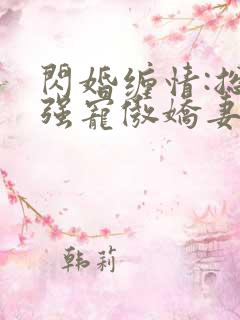 閃婚缠情:
强寵傲嬌妻
韩莉